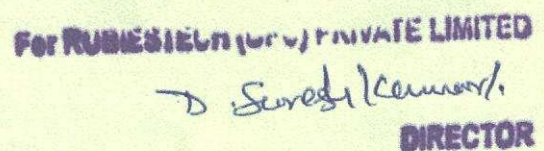 For RUBIESTECH (OPC) PRIVATE LIMITED
D. Suresh Kumar
DIRECTOR